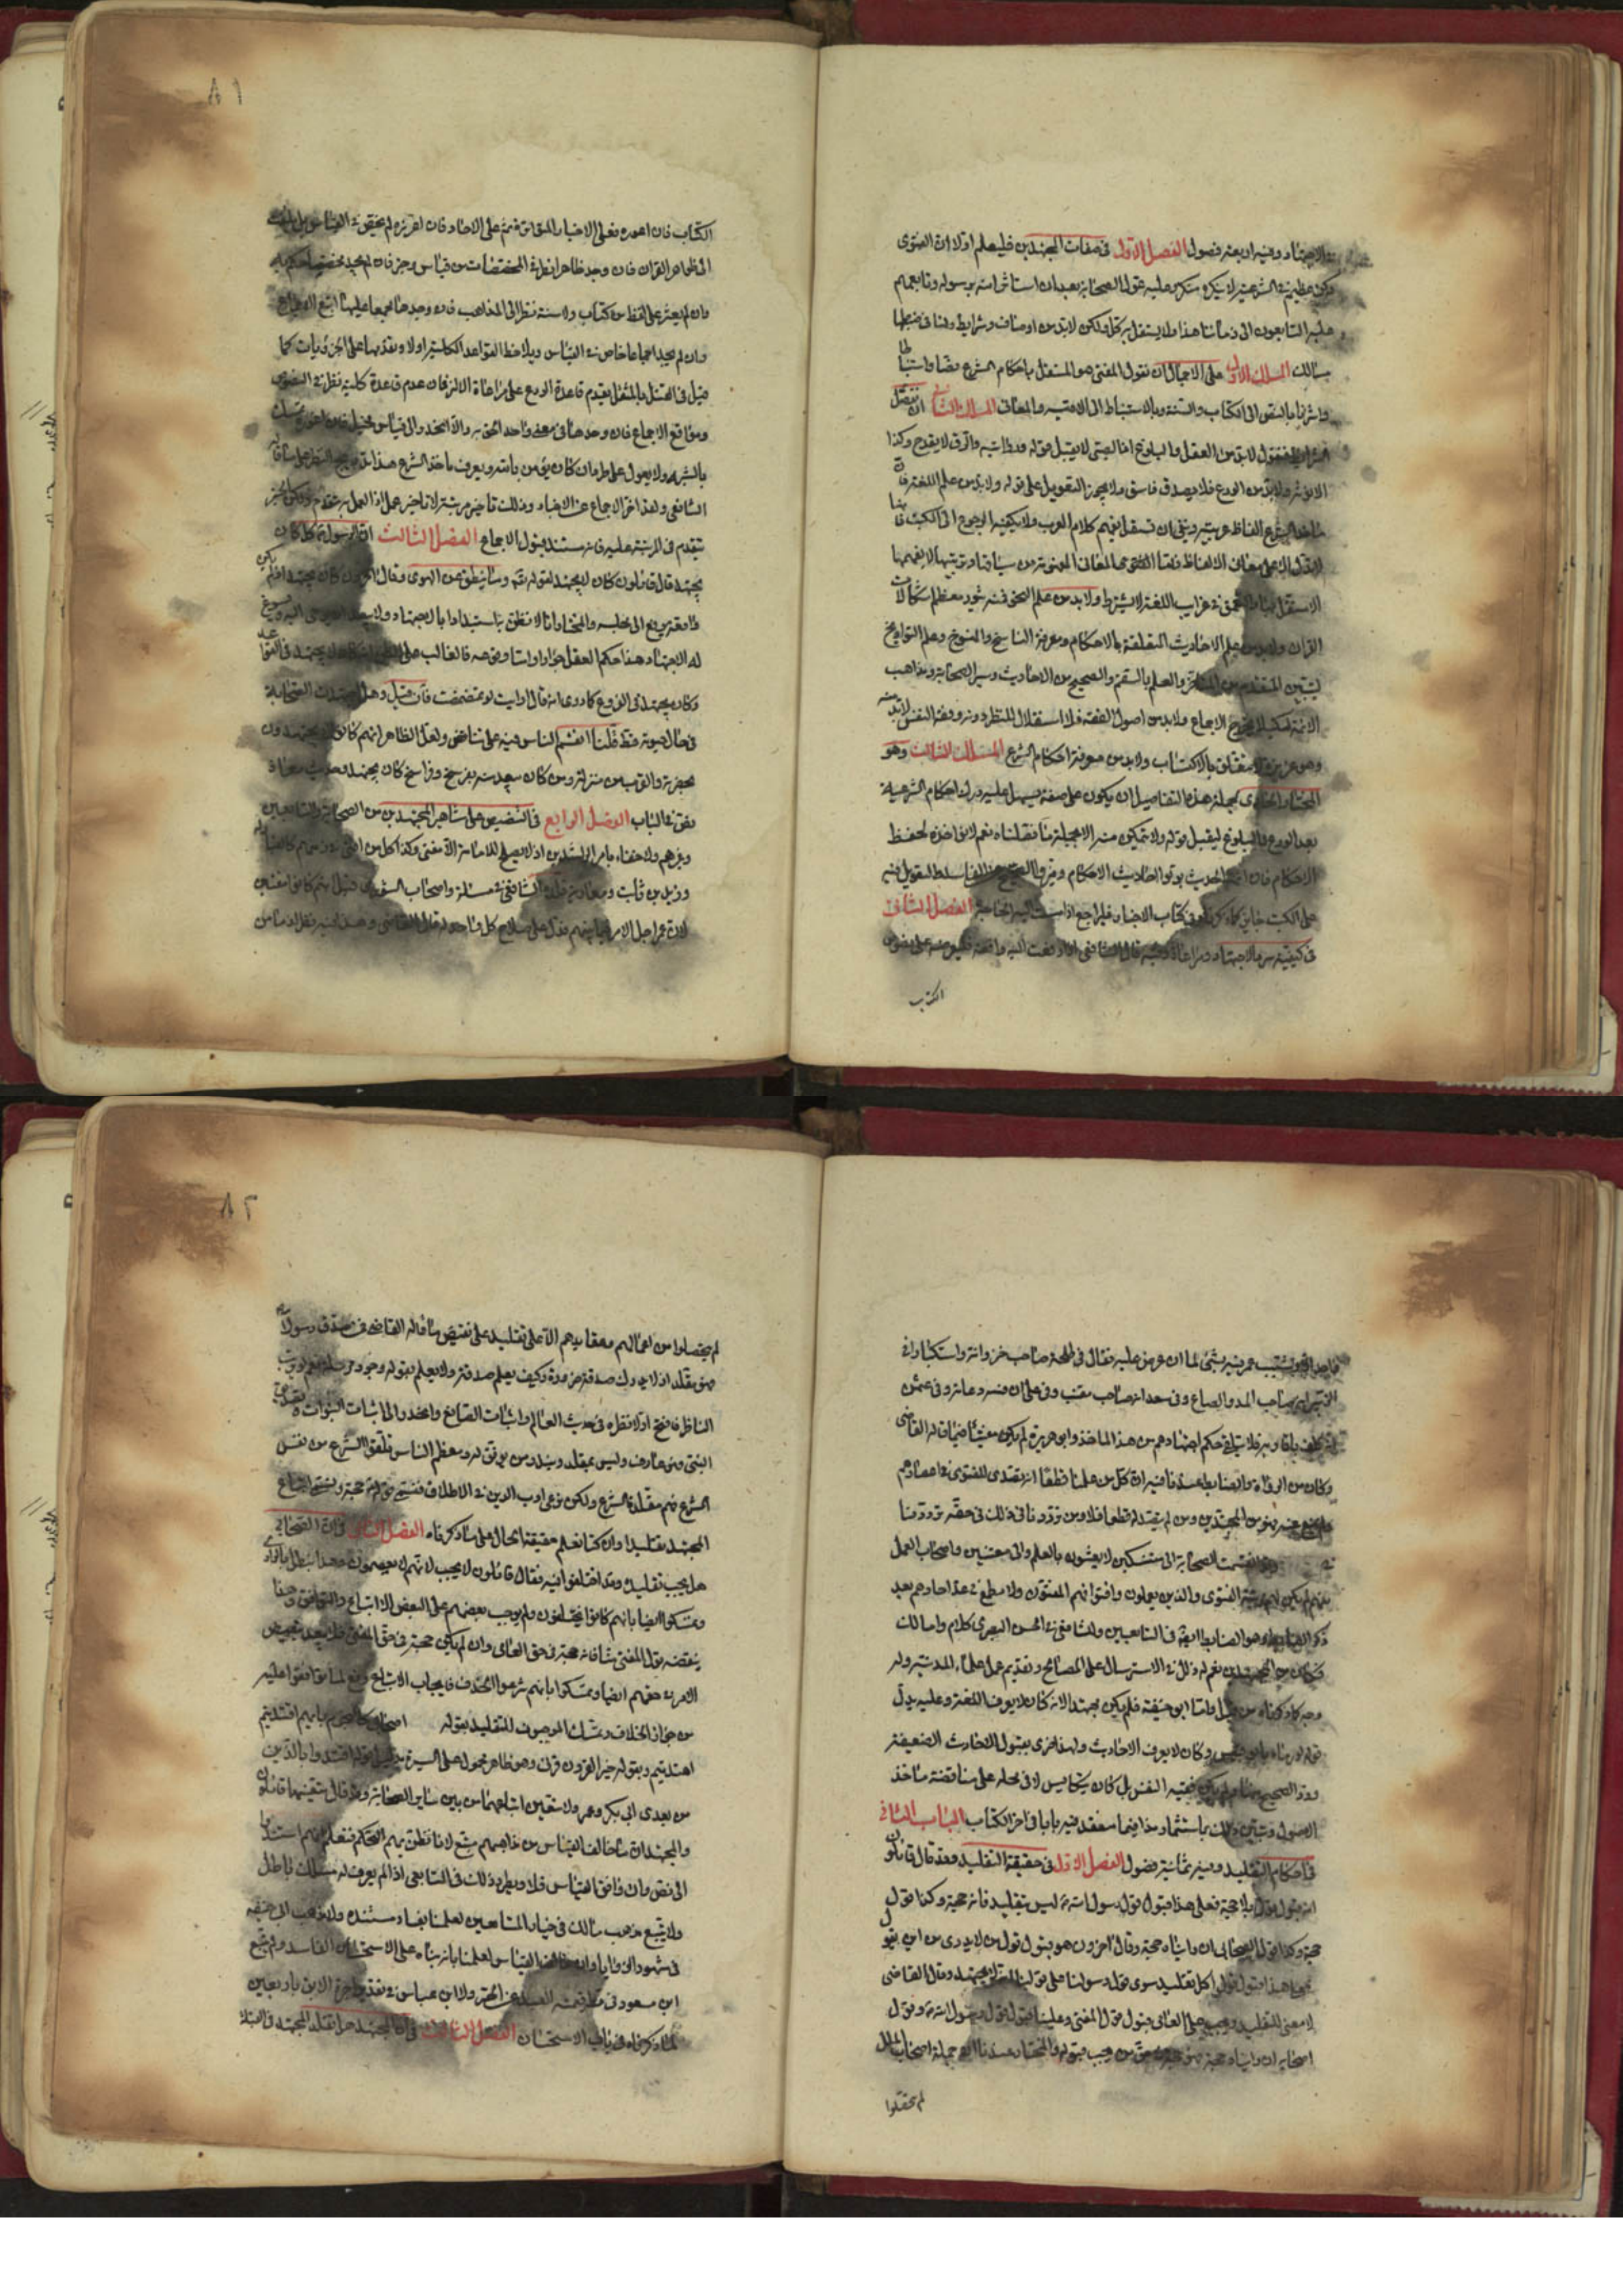 في الاجتهاد وفيه اربعة فصول الفصل الاول في صفات المجتهدين فليعلم اولا ان الفتوى
ركن عظيم في الشريعة لا ينكره منكر وعليه عول الصحابة بعد ان استأثر الله برسوله وتابعهم
عليه التابعون الى زماننا هذا ولا يستقل به كل احد ولكن لا بد من اوصاف وشرايط ولنا في ضبطها
مسالك المسلك الاول على الاجمال ان نقول المفتي هو المستقل باحكام الشرع نصا واستنباطا
واشرنا بالنص الى الكتاب والسنة وبالاستنباط الى الاقيسة والمعاني المسلك الثاني ان نفصل
الشرايط فنقول لا بد من العقل والبلوغ اذ الصبي لا يقبل قوله وروايته والرق لا يقدح وكذا
الانوثة ولا بد من الورع فلا يصدق فاسق ولا يجوز التعويل على قوله ولا بد من علم اللغة فان
مآخذ الشرع الفاظ عربية وينبغي ان يستقل بفهم كلام العرب ولا يكفيه الرجوع الى الكتب فانها
لا تدل الا على معاني الالفاظ فاما المعاني المفهومة من سياقها وترتيبها لا يفهمها
الا مستقل بها والتعمق في غرايب اللغة لا يشترط ولا بد من علم النحو فمنه يثور معظم اشكالات
القران ولا بد من علم الاحاديث المتعلقة بالاحكام ومعرفة الناسخ والمنسوخ وعلم التواريخ
ليتبين المتقدم من المتاخر والعلم بالسقيم والصحيح من الاحاديث وسير الصحابة ومذاهب
الائمة لكيلا يخرق الاجماع ولا بد من اصول الفقه فلا استقلال للنظر دونه وفقه النفس لا بد منه
وهو غريزة لا تتعلق بالاكتساب ولا بد من معرفة احكام الشرع المسلك الثالث وهو
المختار الحاوي لجملة هذه التفاصيل ان يكون على صفة يسهل عليه درك احكام الشريعة
بعد الورع والبلوغ ليقبل قوله ولا يتمكن منه الا بجملة ما فصلناه نعم لا نؤاخذه لحفظ
الاحكام فان ائمة الحديث بوبوا احاديث الاحكام وميزوا الصحيح عن الفاسد فالتعويل فيه
على الكتب جايز كما ذكرناه في كتاب الاخبار فليراجع اذا مست اليه الحاجة الفصل الثاني
في كيفية سرد الاجتهاد ومراعاة ترتيبه قال الشافعي اذا رفعت اليه واقعة فليعرضه على نصوص
الكتاب
٨١
الكتاب فان اعوزه فعلى الاخبار المتواترة ثم على الاحاد فان اعوزه لم يخض في القياس بل يلتفت
الى ظواهر القران فان وجد ظاهرا نظر في المخصصات من قياس وخبر فان لم يجد مخصصا حكم به
وان لم يعثر على لفظ من كتاب ولا سنة نظر الى المذاهب فان وجدها مجمعا عليها اتبع الاجماع
وان لم يجد اجماعا خاض في القياس ويلاحظ القواعد الكلية اولا ويقدمها على الجزويات كما
قيل في القتل بالمثقل يقدم قاعدة الردع على مراعاة الالة فان عدم قاعدة كلية نظر في النصوص
ومواقع الاجماع فان وجدها في معنى واحد الحق به والا انحدر الى قياس مخيل فان اعوزه تمسك
بالشبه ولا يعول على طرد ان كان يؤمن بالله ويعرف مآخذ الشرع هذا تدريج النظر على ما قاله
الشافعي ولقد اخر الاجماع عن الاخبار وذلك تاخير مرتبة لا تاخير عمل اذ العمل به مقدم ولكن الخبر
يتقدم في المرتبة عليه فانه مستند قبول الاجماع الفصل الثالث ان الرسول هل كان
يجتهد قال قائلون كان لا يجتهد لقوله تعالى وما ينطق عن الهوى وقال اخرون كان يجتهد اذ لم يكن
له الاجتهاد هذا حكم العقل جوازا واما وقوعه فالغالب على الظن انه كان لا يجتهد في القواعد
وكان يجتهد في الفروع كما روي انه قال ارايت لو تمضمضت فان قيل وهل اجتهدت الصحابة
في حال حيوته قط قلنا انقسم الناس فيه على تناقض ولعل الظاهر انهم كانوا لا يجتهدون
بحضرته والقرب من منزله ومن كان يبعد منه بفرسخ وفراسخ كان يجتهد وحديث معاذ
نص في الباب الفصل الرابع في التنصيص على مشاهير المجتهدين من الصحابة والتابعين
وغيرهم ولا خفاء بامر الراشدين اذ لا يصلح للامامة الا مفتي وكذا كل من افتى في زمانهم كالعبادلة
وزيد بن ثابت ومعاوية قلده الشافعي في مسئلة واصحاب الشورى قيل انهم كانوا مفتيين
لان عمر اجل الامر بينهم فدل على صلاح كل واحد له قال القاضي وهذا فيه نظر اذ ما من
واحد الا ونسب عمر فيه بشي لما ان عرض عليه فقال في طلحة صاحب خزوانة واستكبار وفي
الزبير انه صاحب المد والصاع وفي سعد انه صاحب مقنب وفي علي ان فيه دعابة وفي عثمن
انه كلف باقاربه فلا يتلقى حكم اجتهادهم من هذا المأخذ وابو هريرة لم يكن مفتيا فيما قاله القاضي
وكان من الرواة والضابط عندنا فيه ان كل من علمنا قطعا انه يتصدى للفتوى في اعصارهم
ولم يمنع عنه فهو من المجتهدين ومن لم يتصد له قطعا فلا ومن ترددنا في ذلك في حقه ترددنا
في وقد انقسمت الصحابة الى متنسكين لا يعتنون بالعلم والى معتنين واصحاب العمل
منهم لم يكن لهم رتبة الفتوى والذين يعملون وافتوا فهم المفتون ولا مطمع في عد احادهم بعد
ذكر الضابط وهو الضابط ايضا في التابعين وللشافعي في الحسن البصري كلام واما مالك
فكان من المجتهدين نعم له زلل في الاسترسال على المصالح وتقديم عمل علماء المدينة وله
وجه كما ذكرناه من قبل واما ابو حنيفة فلم يكن مجتهدا لانه كان لا يعرف اللغة وعليه يدل
قوله لو رماه بابو قبيس وكان لا يعرف الاحاديث ولهذا ضري بقبول الاحاديث الضعيفة
ورد الصحيح منها ولم يكن فقيه النفس بل كان يتكايس لا في محله على مناقضة مآخذ
الاصول ويتبين ذلك باستثمار مذاهبه فيما سنعقد فيه بابا في اخر الكتاب الباب الثاني
في احكام التقليد وفيه ثمانية فصول الفصل الاول في حقيقة التقليد وقد قال قائلون
انه قبول قول بلا حجة فعلى هذا قبول قول رسول الله ليس بتقليد فانه حجة وكذا قول
حجة وكذا قول الصحابي ان رايناه حجة وقال اخرون هو قبول قول من لا يدرى من اين يقول
فعلى هذا قبول قول كل تقليد سوى قول رسولنا فعلى قولنا انه كان لا يجتهد وقال القاضي
لا معنى للتقليد ويجب على العامي قبول قول المفتي وعلينا قبول قول رسول الله وقول
اصحابه ان رايناه حجة فهو حجة في حق من يجب قبوله والمختار عندنا ان جملة اصحاب الملل
لم يحصلوا
٨٢
لم يحصلوا من اعمالهم وعقايدهم الا على تقليد على نقيض ما قاله القاضي فمن صدق رسول الله
فهو مقلد اذ لا يدرك صدقه ضرورة وكيف يعلم صدقه ولا يعلم بقوله وجود مرسله نعم لو رتب
الناظر فافتتح اولا نظره في حدث العالم واثبات الصانع وانحدر الى اثبات النبوات وتصديق
النبي فهو عارف وليس بمقلد ويندر من يوفق له ومعظم الناس تلقوا الشرع من نفس
الشرع فهم مقلدة الشرع ولكن نوعي ادب الدين في الاطلاق فنسمي قوله حجة ونسمي اتباع
المجتهد تقليدا وان كنا نعلم حقيقة الحال على ما ذكرناه الفصل الثاني في ان الصحابي
هل يجب تقليده وقد اختلفوا فيه فقال قائلون لا يجب لانهم لا يعصمون وهذا يبطل باخبار
وتمسكوا ايضا بانهم كانوا يختلفون ولم يوجب بعضهم على البعض الاتباع
ينقضه قول المفتي شافه فانه حجة في حق العامي وان لم يكن حجة في حق المفتي فلا يبعد تفويض
الامر في حقهم ايضا وتمسكوا بانهم شرعوا الخلاف فايجاب الاتباع رفع لما توافقوا عليه
من جواز الخلاف وتمسك الموجبون للتقليد بقوله اصحابي كالنجوم بايهم اقتديتم
اهتديتم وبقوله خير القرون قرني وهو ظاهر محمول على السيرة بدليل قوله اقتدوا بالذين
من بعدي ابي بكر وعمر ولا يتعين اتباعهما من بين ساير الصحابة
والمختار ان ما خالف القياس من مذاهبهم متبع لانا نظن بهم التحكم فنعلم انهم استندوا
الى نص وما وافق القياس فلا ويطرد ذلك في التابعي اذا لم يعرف له مسلك باطل
ولا يتبع مذهب مالك في خيار المتبايعين لعلمنا بفساد مستنده ولا مذهب ابي حنيفة
في شهود الزوايا وان خالف القياس لعلمنا بانه بناه على الاستحسان الفاسد ولم نتبع
ابن مسعود في العبد عن الحر ولا ابن عباس في تقدير اجرة الابق باربعين
لما ذكرناه في باب الاستحسان الفصل الثالث في ان المجتهد هل يقلد المجتهد في القبلة